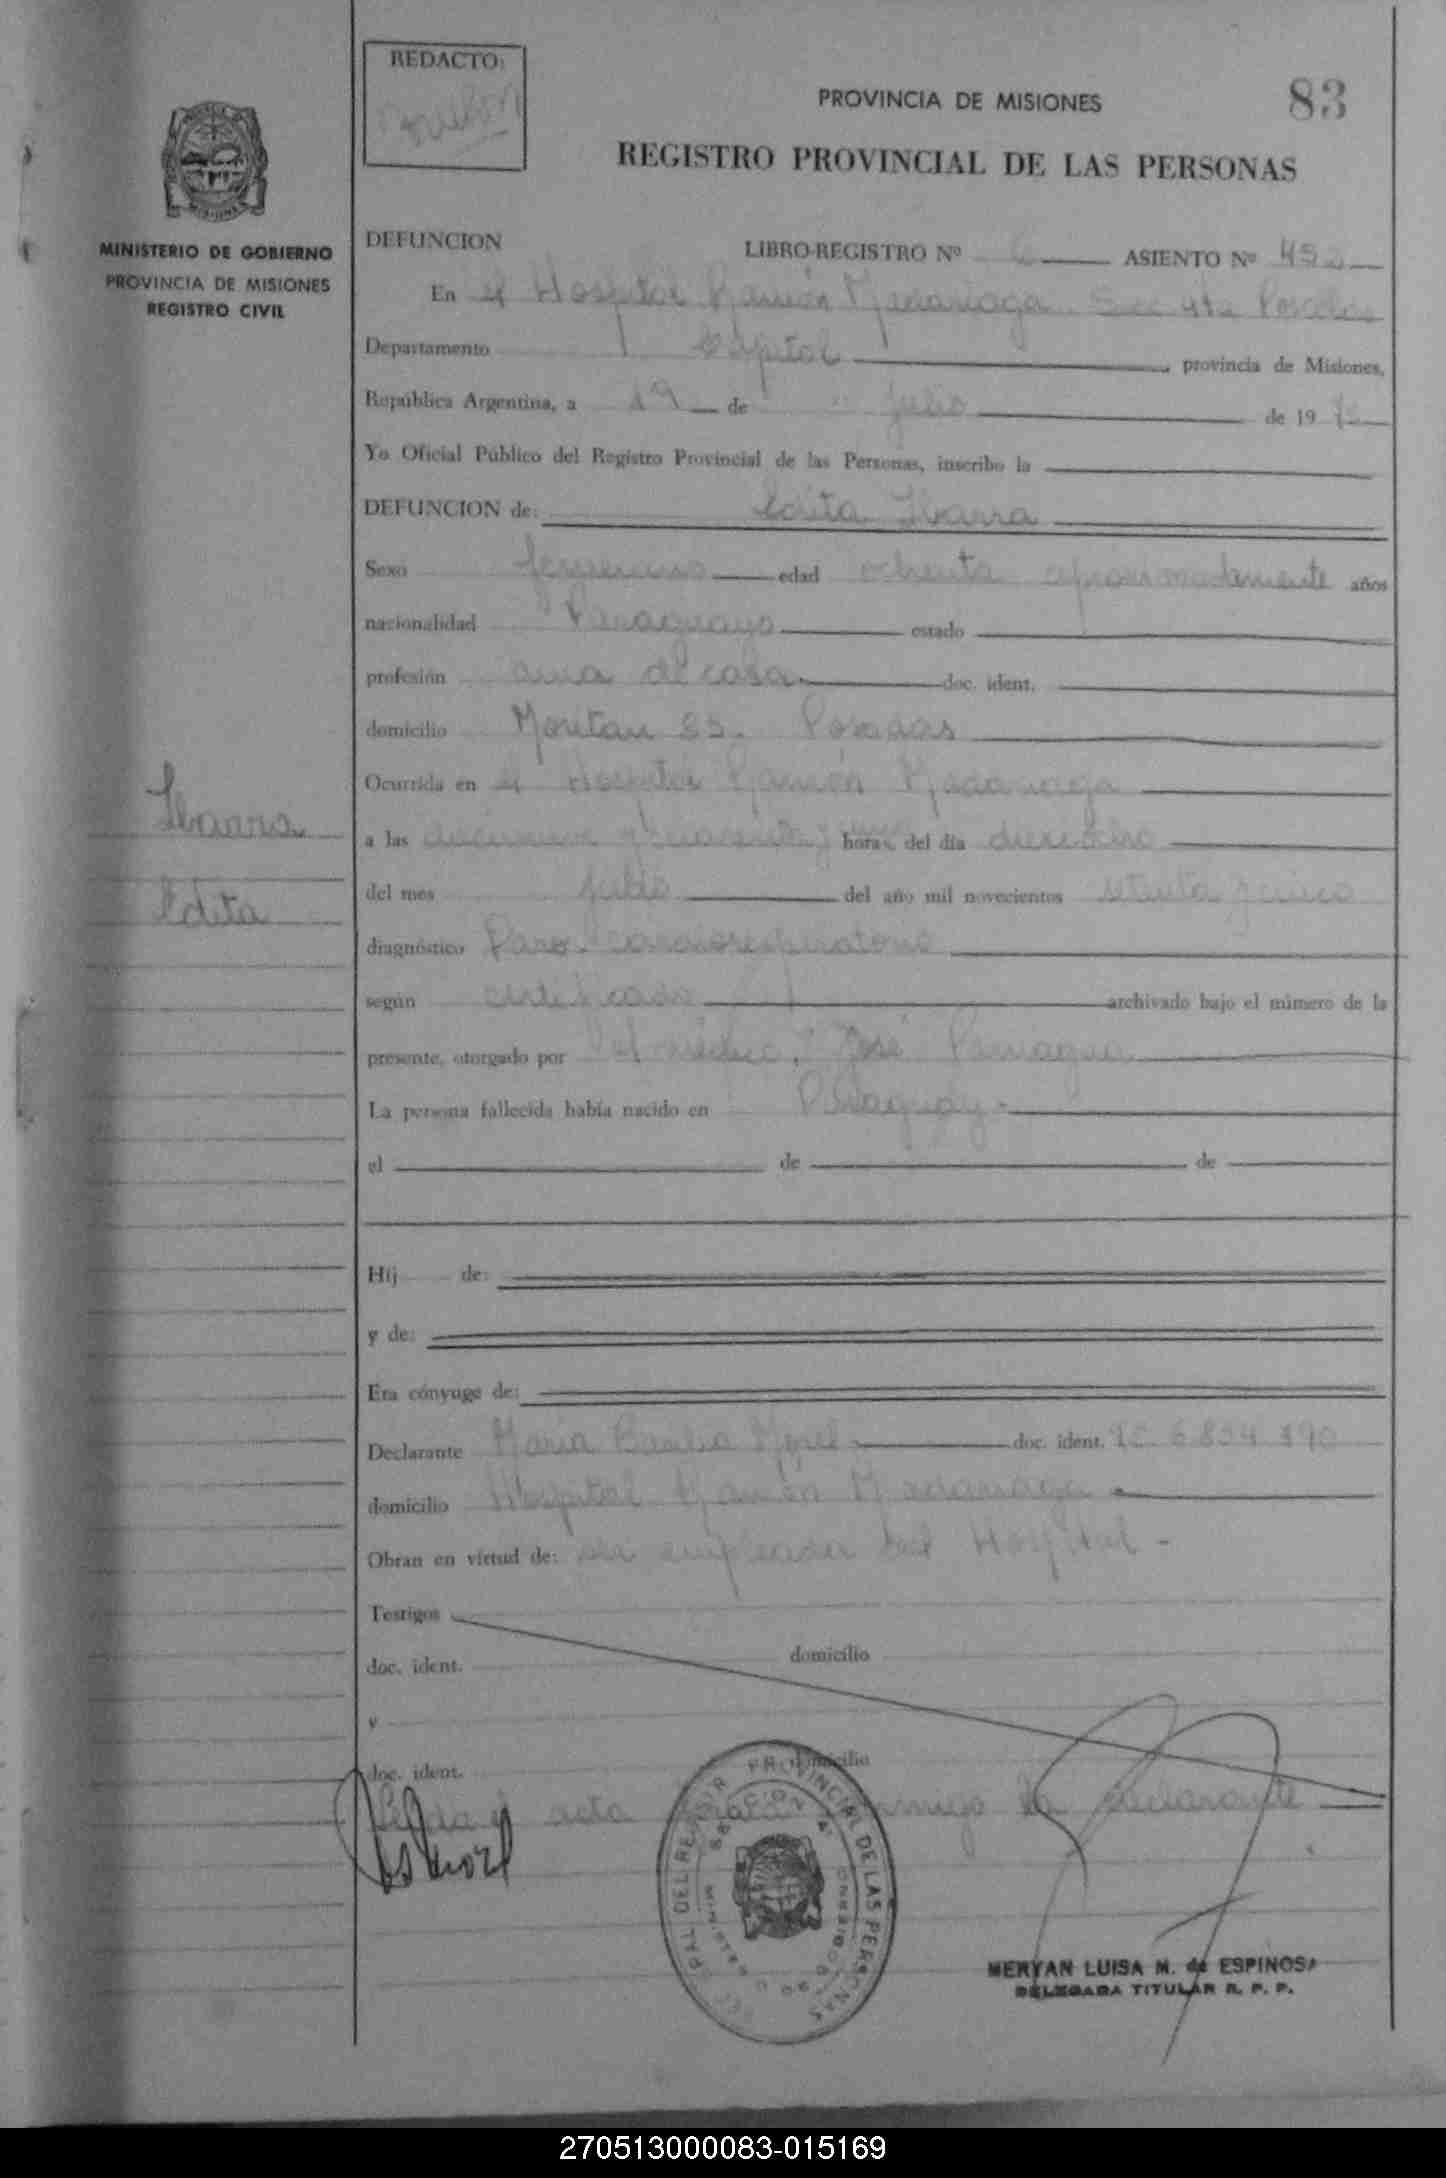 REDACTO:
PROVINCIA DE MISIONES
83
REGISTRO PROVINCIAL DE LAS PERSONAS
MINISTERIO DE GOBIERNO
PROVINCIA DE MISIONES
REGISTRO CIVIL
DEFUNCION LIBRO-REGISTRO Nº 6 ASIENTO Nº 452
En el Hospital Ramón Madariaga. Secc 4ta Posadas
Departamento Capital provincia de Misiones,
República Argentina, a 19 de Julio de 1975
Yo Oficial Público del Registro Provincial de las Personas, inscribo la
DEFUNCION de: Edita Ibarra
Sexo femenino edad ochenta aproximadamente años
nacionalidad Paraguaya estado
profesión ama de casa doc. ident.
domicilio 83. Posadas
Ocurrida en el Hospital Ramón Madariaga
Ibarra
Edita
a las diecinueve y cuarenta y horas del día dieciocho
del mes Julio del año mil novecientos setenta y cinco
diagnóstico Paro cardiorespiratorio
según certificado archivado bajo el número de la
presente, otorgado por el médico, José Paniagua
La persona fallecida había nacido en Paraguay-
el de de
Hij de:
y de:
Era cónyuge de:
Declarante María Morel doc. ident. 6.854.390
domicilio Hospital Ramón Madariaga
Obran en virtud de: ser empleada del Hospital -
Testigos
doc. ident. domicilio
y
doc. ident. domicilio
Leída el acta conmigo la declarante
PROVINCIAL DE LAS PERSONAS
SECCION 4ª
MERYAN LUISA M. de ESPINOSA
DELEGADA TITULAR R. P. P.
270513000083-015169